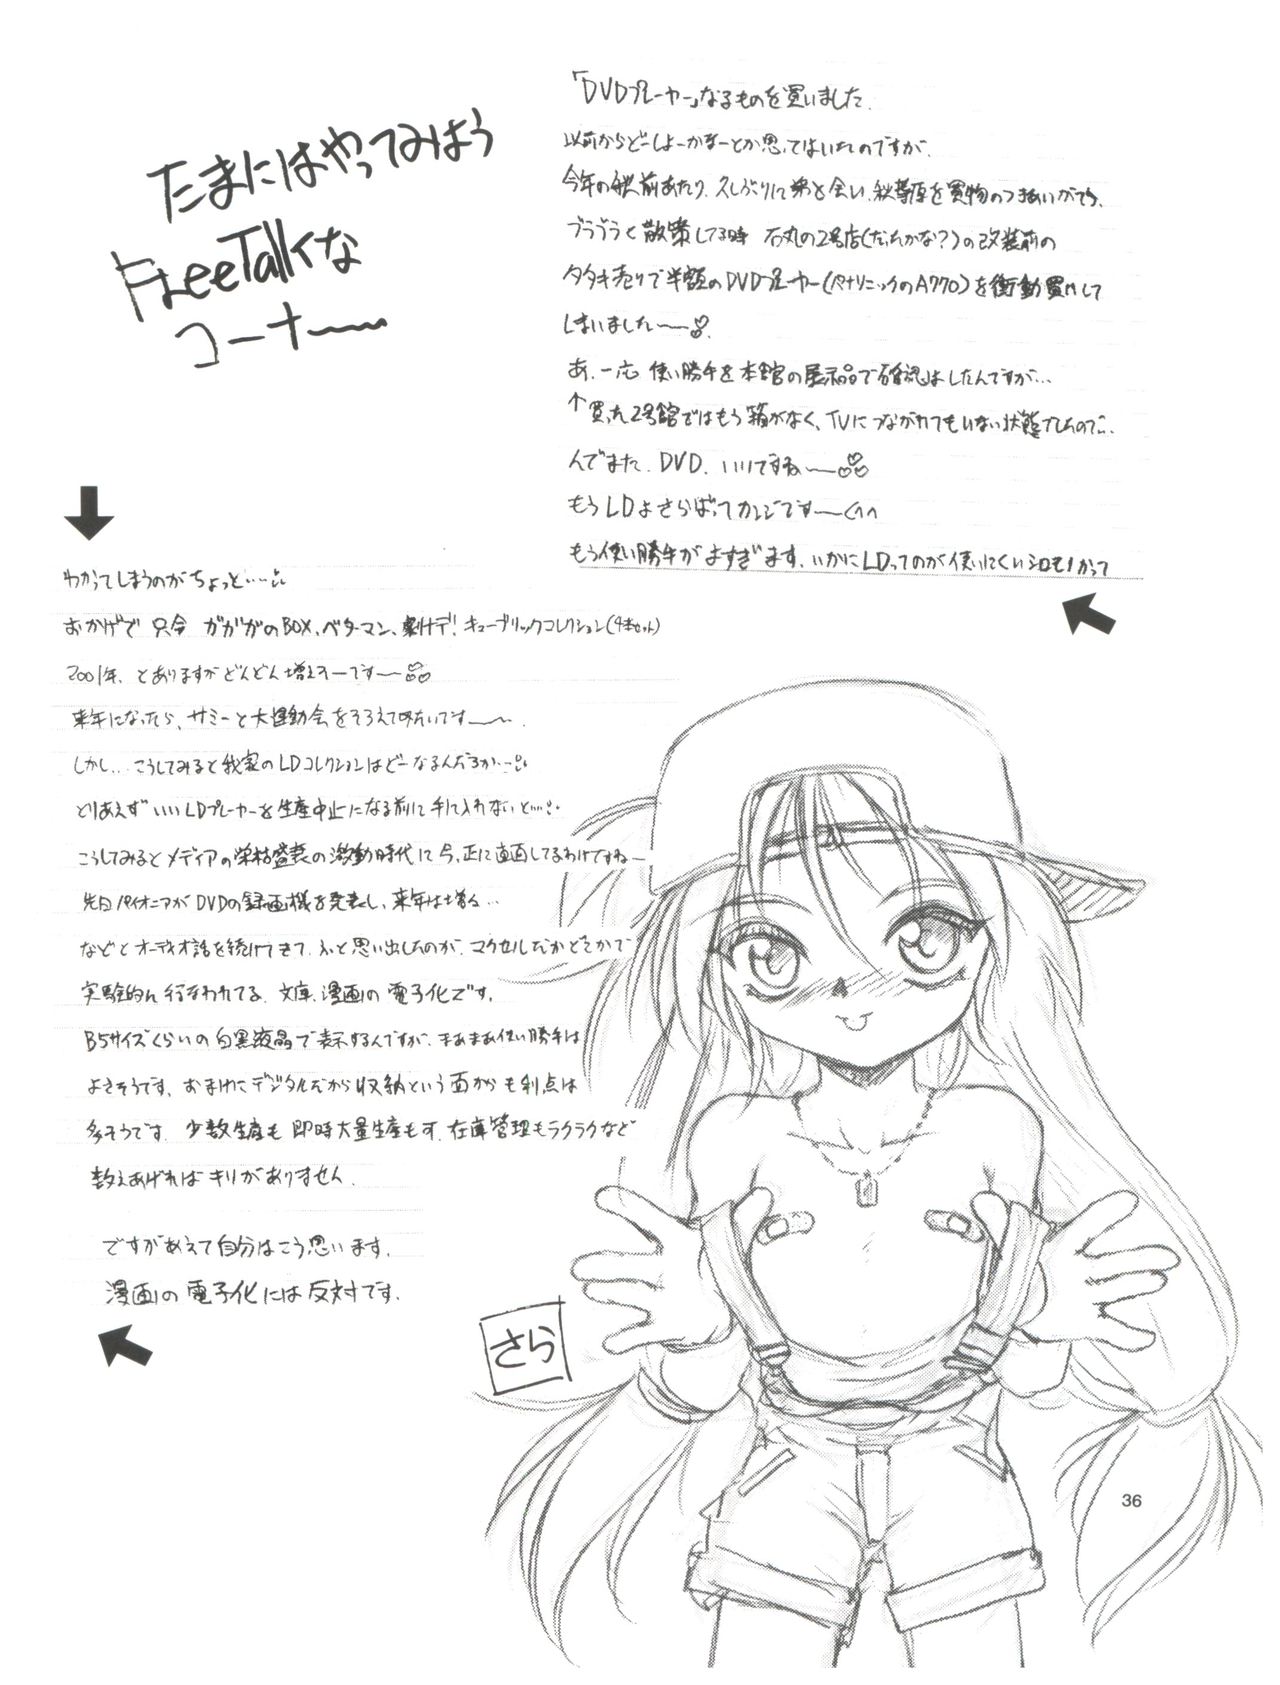 たまにはやってみはう
FreeTalkな
コーナー〜
「DVDプレーヤー」なるものを買いました.
以前からどーしよーかなーとか思ってはいたのですが、
今年の秋前あたり、久しぶりに弟と会い、秋葉原を買物のつきあいがてら、
ブラブラと散策してる時 石丸の2号店(だったかな?)の改装前の
タタキ売りで半額のDVDプレーヤー(パナソニックのA770)を衝動買いして
しまいました〜
あ、一応 使い勝手を本館の展示品で確認はしたんですが…
↑買った2号館ではもう箱がなく、TVにつながれてもいない状態でしたので…
んでまた、DVD、いいですね〜
もうLDよさらばってカンジです〜(^^
もう使い勝手がよすぎます、いかにLDってのが使いにくいシロモノかって
わかってしまうのがちょっと…
おかげで 只今 ガガガのBOX、ベターマン、劇ナデ! キューブリックコレクション(4本セット)
2001年、とありますがどんどん増えそーです〜
来年になったら、サミーと大運動会をそろえてみたいです〜.
しかし… こうしてみると我家のLDコレクションはどーなるんだろか…
とりあえず いいLDプレーヤーを生産中止になる前に手に入れないと…
こうしてみるとメディアの栄枯盛衰の激動時代に今、正に直面してるわけですね〜
先日パイオニアがDVDの録画機を発表し、来年は増る…
などとオーディオ話を続けてきて、ふと思い出したのが、マクセルだかどこかで
実験的に行なわれてる、文庫、漫画の電子化です.
B5サイズくらいの白黒液晶で表示するんですが、まあまあ使い勝手は
よさそうです、おまけにデジタルだから収納という面からも利点は
多そうです、少数生産も即時大量生産もす、在庫管理もラクラクなど
数えあげればキリがありません.
ですがあえて自分はこう思います.
漫画の電子化には反対です.
さら
36